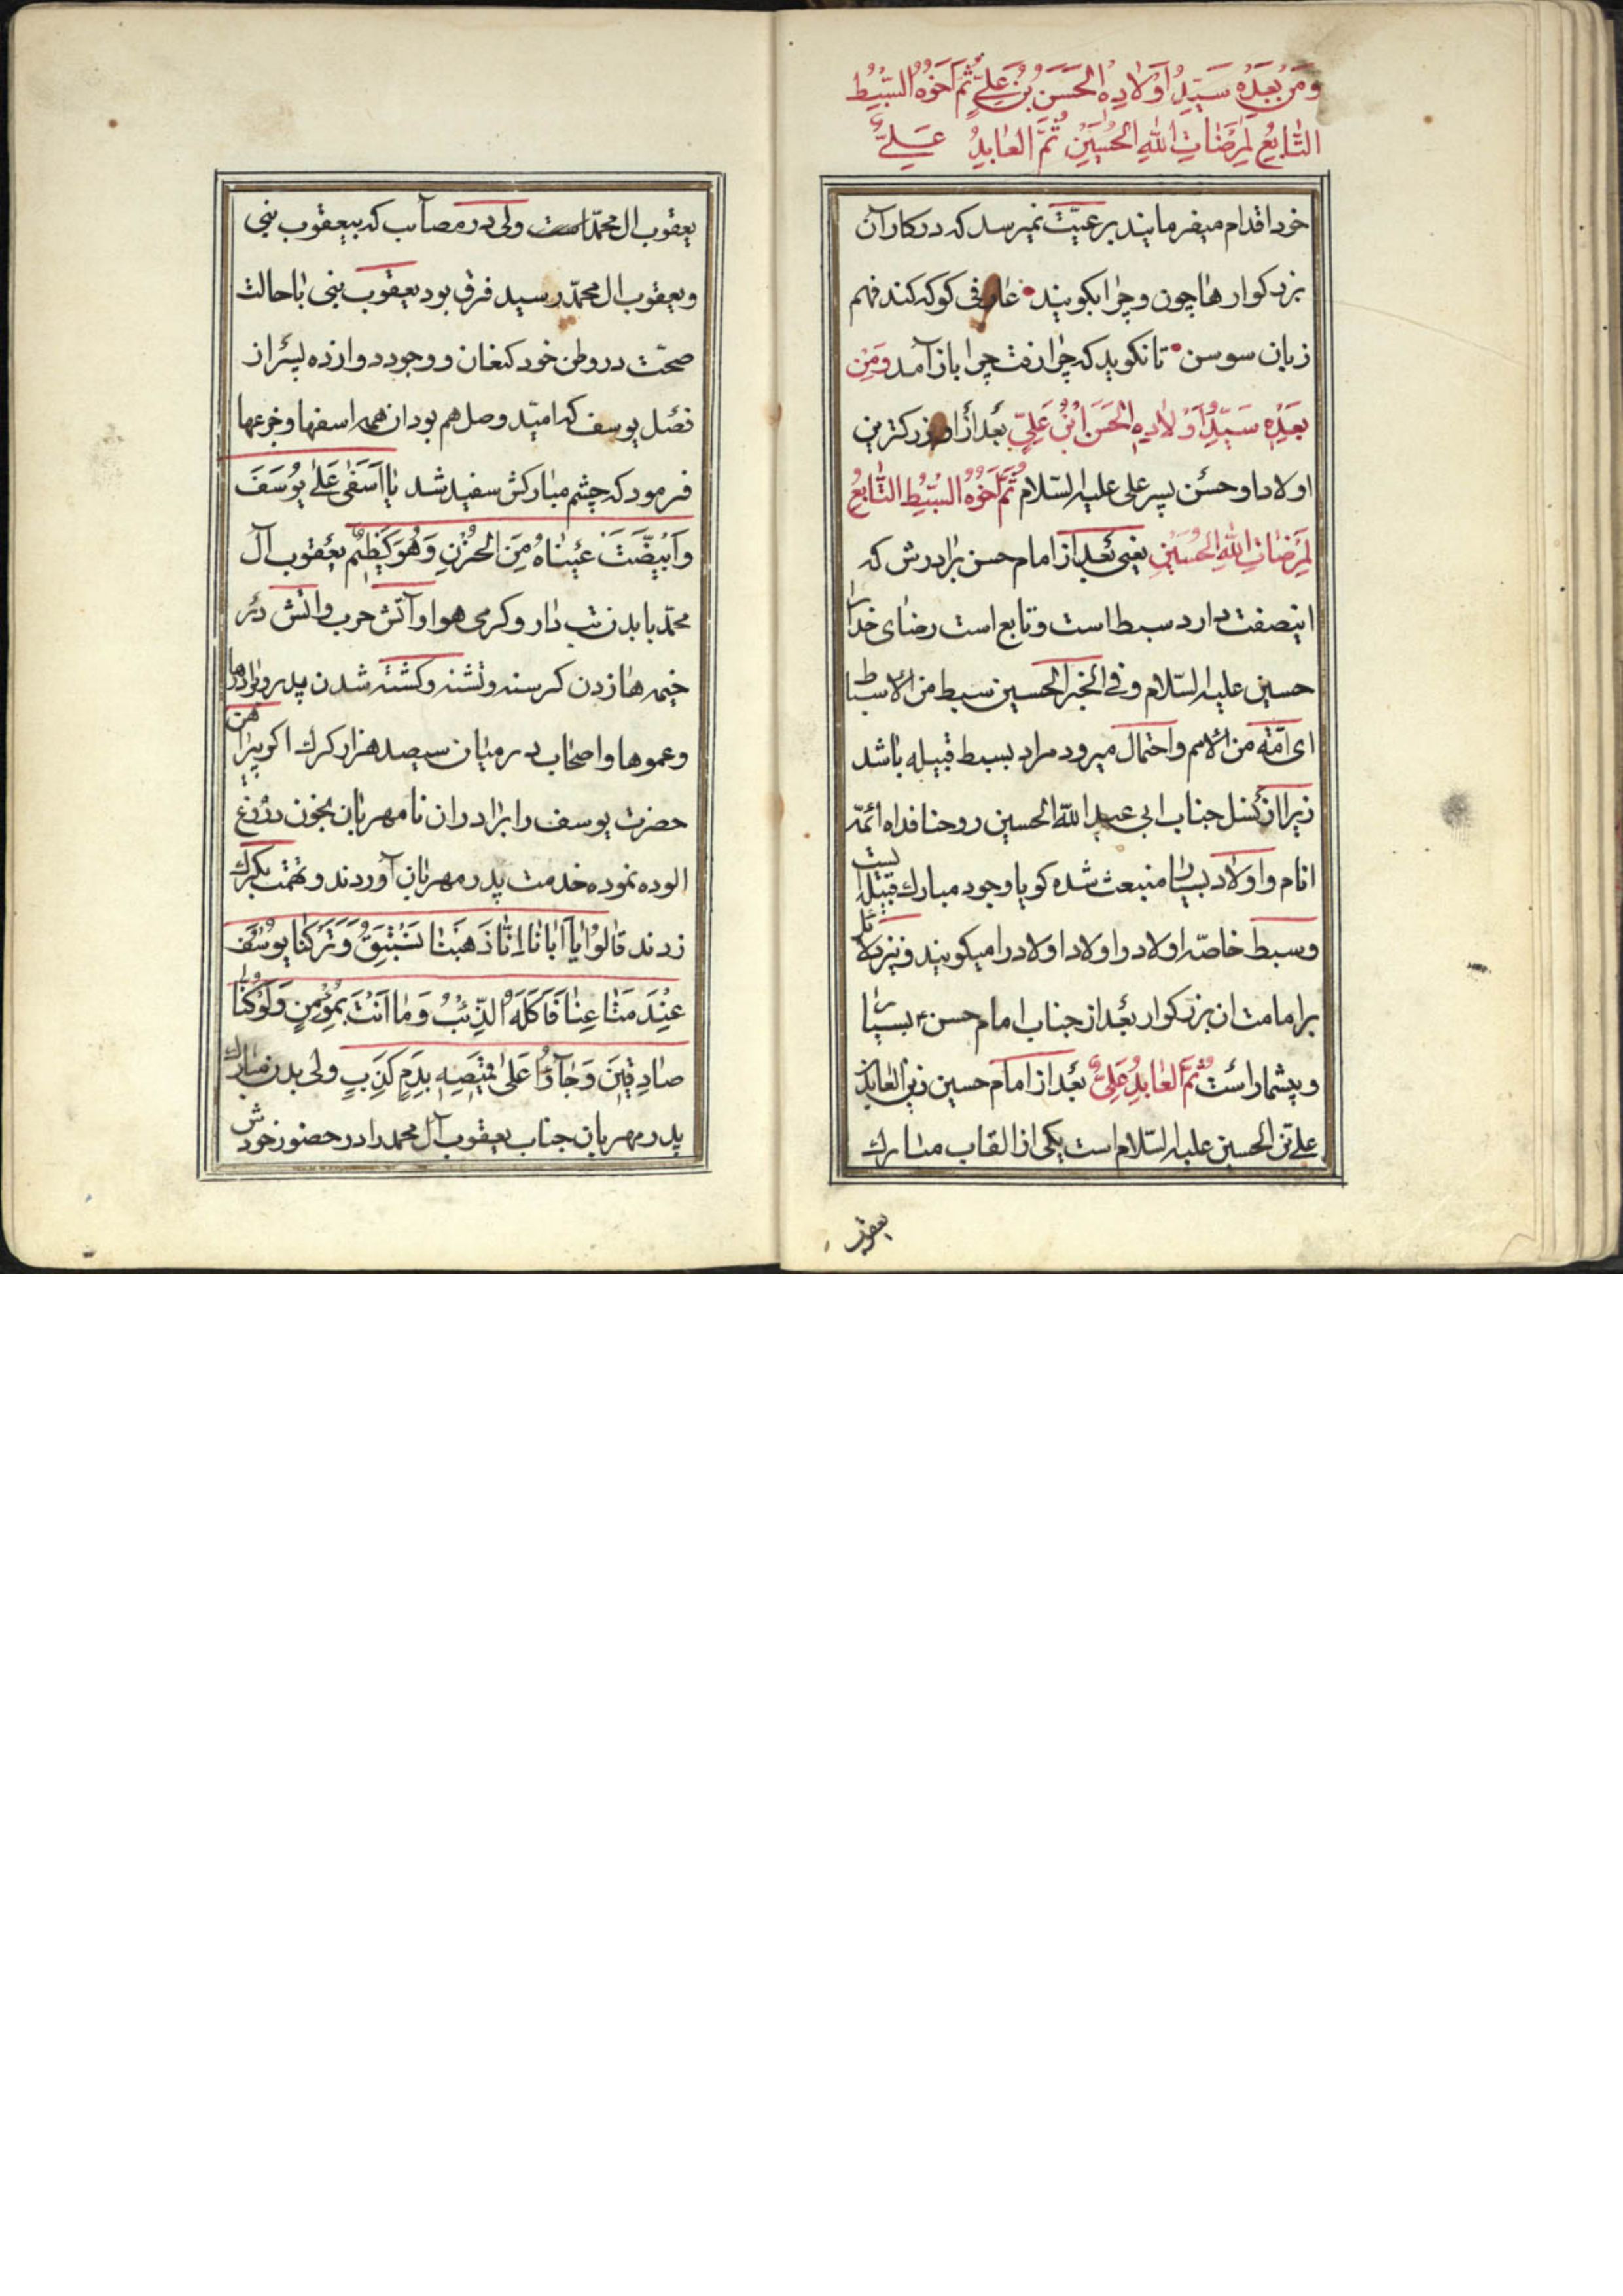 وَمَنْ بَعْدِهِ سَيِّدُ اَوْلادِهِ الْحَسَنُ بْنُ عَلِيٍّ ثُمَّ اَخُوهُ السِّبْطُ
التّابِعُ لِمَرْضاتِ اللهِ الْحُسَيْنِ ثُمَّ الْعابِدُ عَلِيٌّ
خود اقدام میفرمایند برعیّت نمیرسد که در کار آن
بزرکوارها چون و چرا بکویند عارفی کو که کند فهم
زبان سوسن تا نکوید که چرا رفت چرا باز آمد وَمِنْ
بَعْدِهِ سَيِّدُ اَوْلادِهِ الْحَسَنُ ابْنُ عَلِيٍّ بعد از او بزرکترین
اولاد او حسن پسر علی علیه السّلام ثُمَّ اَخُوهُ السِّبْطُ التّابِعُ
لِمَرْضاتِ اللهِ الْحُسَيْنِ یعنی بعد از امام حسن برادرش که
اینصفت دارد سبط است و تابع است رضای خدا را
حسین علیه السّلام و فی الخبر الحسین سبط من الاسباط
ای امّة من الامم و احتمال میرود مراد بسبط قبیله باشد
زیرا از نسل جناب ابی عبد الله الحسین روحنا فداه ائمّه
انام و اولاد بسیار منبعث شده کویا وجود مبارك قبیله ایست
و سبط خاصّه اولاد و اولاد اولاد را میکویند و نیز دلائل
بر امامت ان بزرکوار بعد از جناب امام حسن ع بسیار
و بیشمار است ثُمَّ الْعابِدُ عَلِيٌّ بعد از امام حسین زین العابدین
علی بن الحسین علیه السّلام است یکی از القاب مبارك
یعقوب
یعقوب ال محمّد است ولی در مصآئب که بیعقوب بنی
و یعقوب ال محمّد رسید فرق بود یعقوب بنی با حالت
صحّت در وطن خود کنعان و وجود دوازده پسر از
فصل یوسف که امیّد وصل هم بود ان همه اسفها و جزعها
فرمود که چشم مبارکش سفید شد یا اَسَفی عَلی یُوسُفَ
وَابْیَضَّتْ عَیْناهُ مِنَ الْحُزْنِ وَهُوَ کَظِیمٌ یعقوب آل
محمّد با بدن تب دار و کرمی هوا و آتش حرب و اتش در
خیمه ها زدن کرسنه و تشنه و کشته شدن پدر و برادرها
و عموها و اصحاب در میان سیصد هزار کرك اکر پیراهن
حضرت یوسف را برادران نامهربان بخون دروغ
الوده نموده خدمت پدر مهربان آوردند و تهمت بکرك
زدند قالُوا یآ اَبانا اِنّا ذَهَبْنا نَسْتَبِقُ وَتَرَکْنا یُوسُفَ
عِنْدَ مَتاعِنا فَاَکَلَهُ الذِّئْبُ وَما اَنْتَ بِمُؤْمِنٍ وَلَوْ کُنّا
صادِقِینَ وَجآؤُا عَلی قَمِیصِهِ بِدَمٍ کَذِبٍ ولی بدن مبارك
پدر مهربان جناب یعقوب آل محمد را در حضور خودش